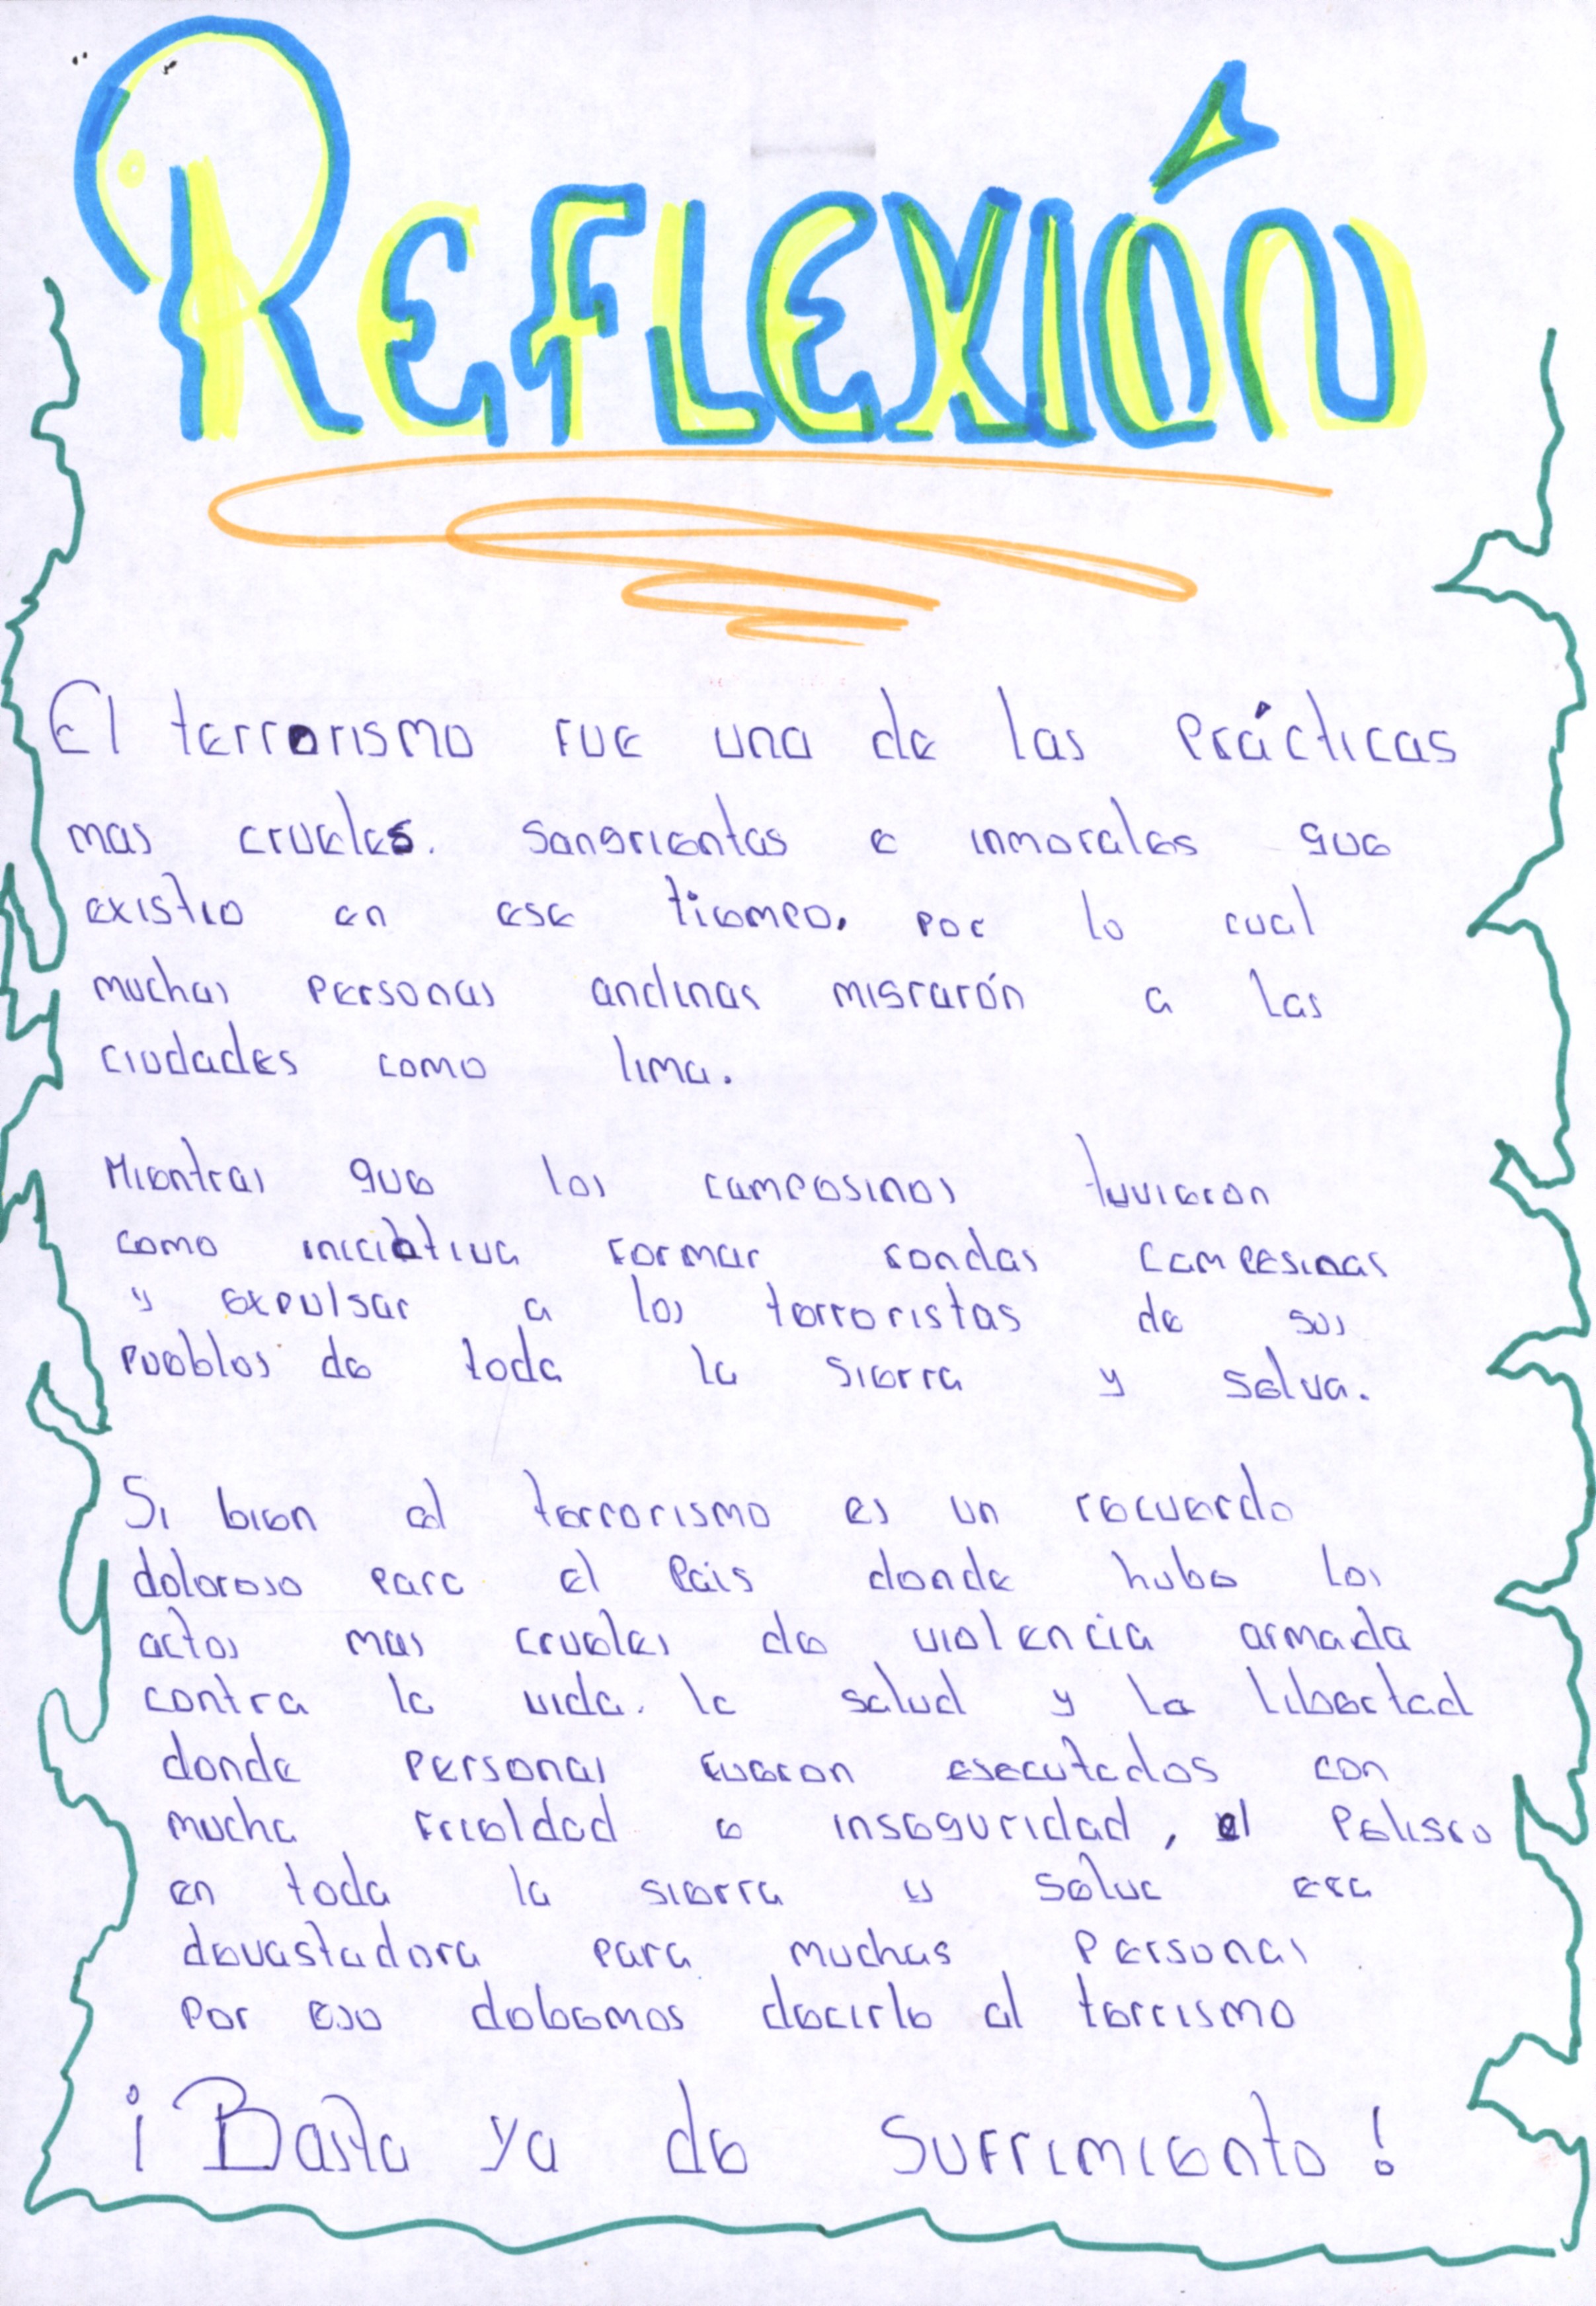 REFLEXIÓN
El terrorismo fue una de las prácticas
mas crueles. sangrientas e inmorales que
existio en ese tiempo, por lo cual
muchas personas andinas migrarón a las
ciudades como lima.
Mientras que los campesinos tuvieron
como iniciativa formar rondas campesinas
y expulsar a los terroristas de sus
pueblos de toda la sierra y selva.
Si bien el terrorismo es un recuerdo
doloroso para el pais donde hubo los
actos mas crueles de violencia armada
contra la vida. la salud y la libertad
donde personas fueron esecutados con
mucha frialdad e inseguridad, el peligro
en toda la sierra y selva era
devastadora para muchas personas
por eso debemos decirle al terrismo
¡Basta ya de sufrimiento!